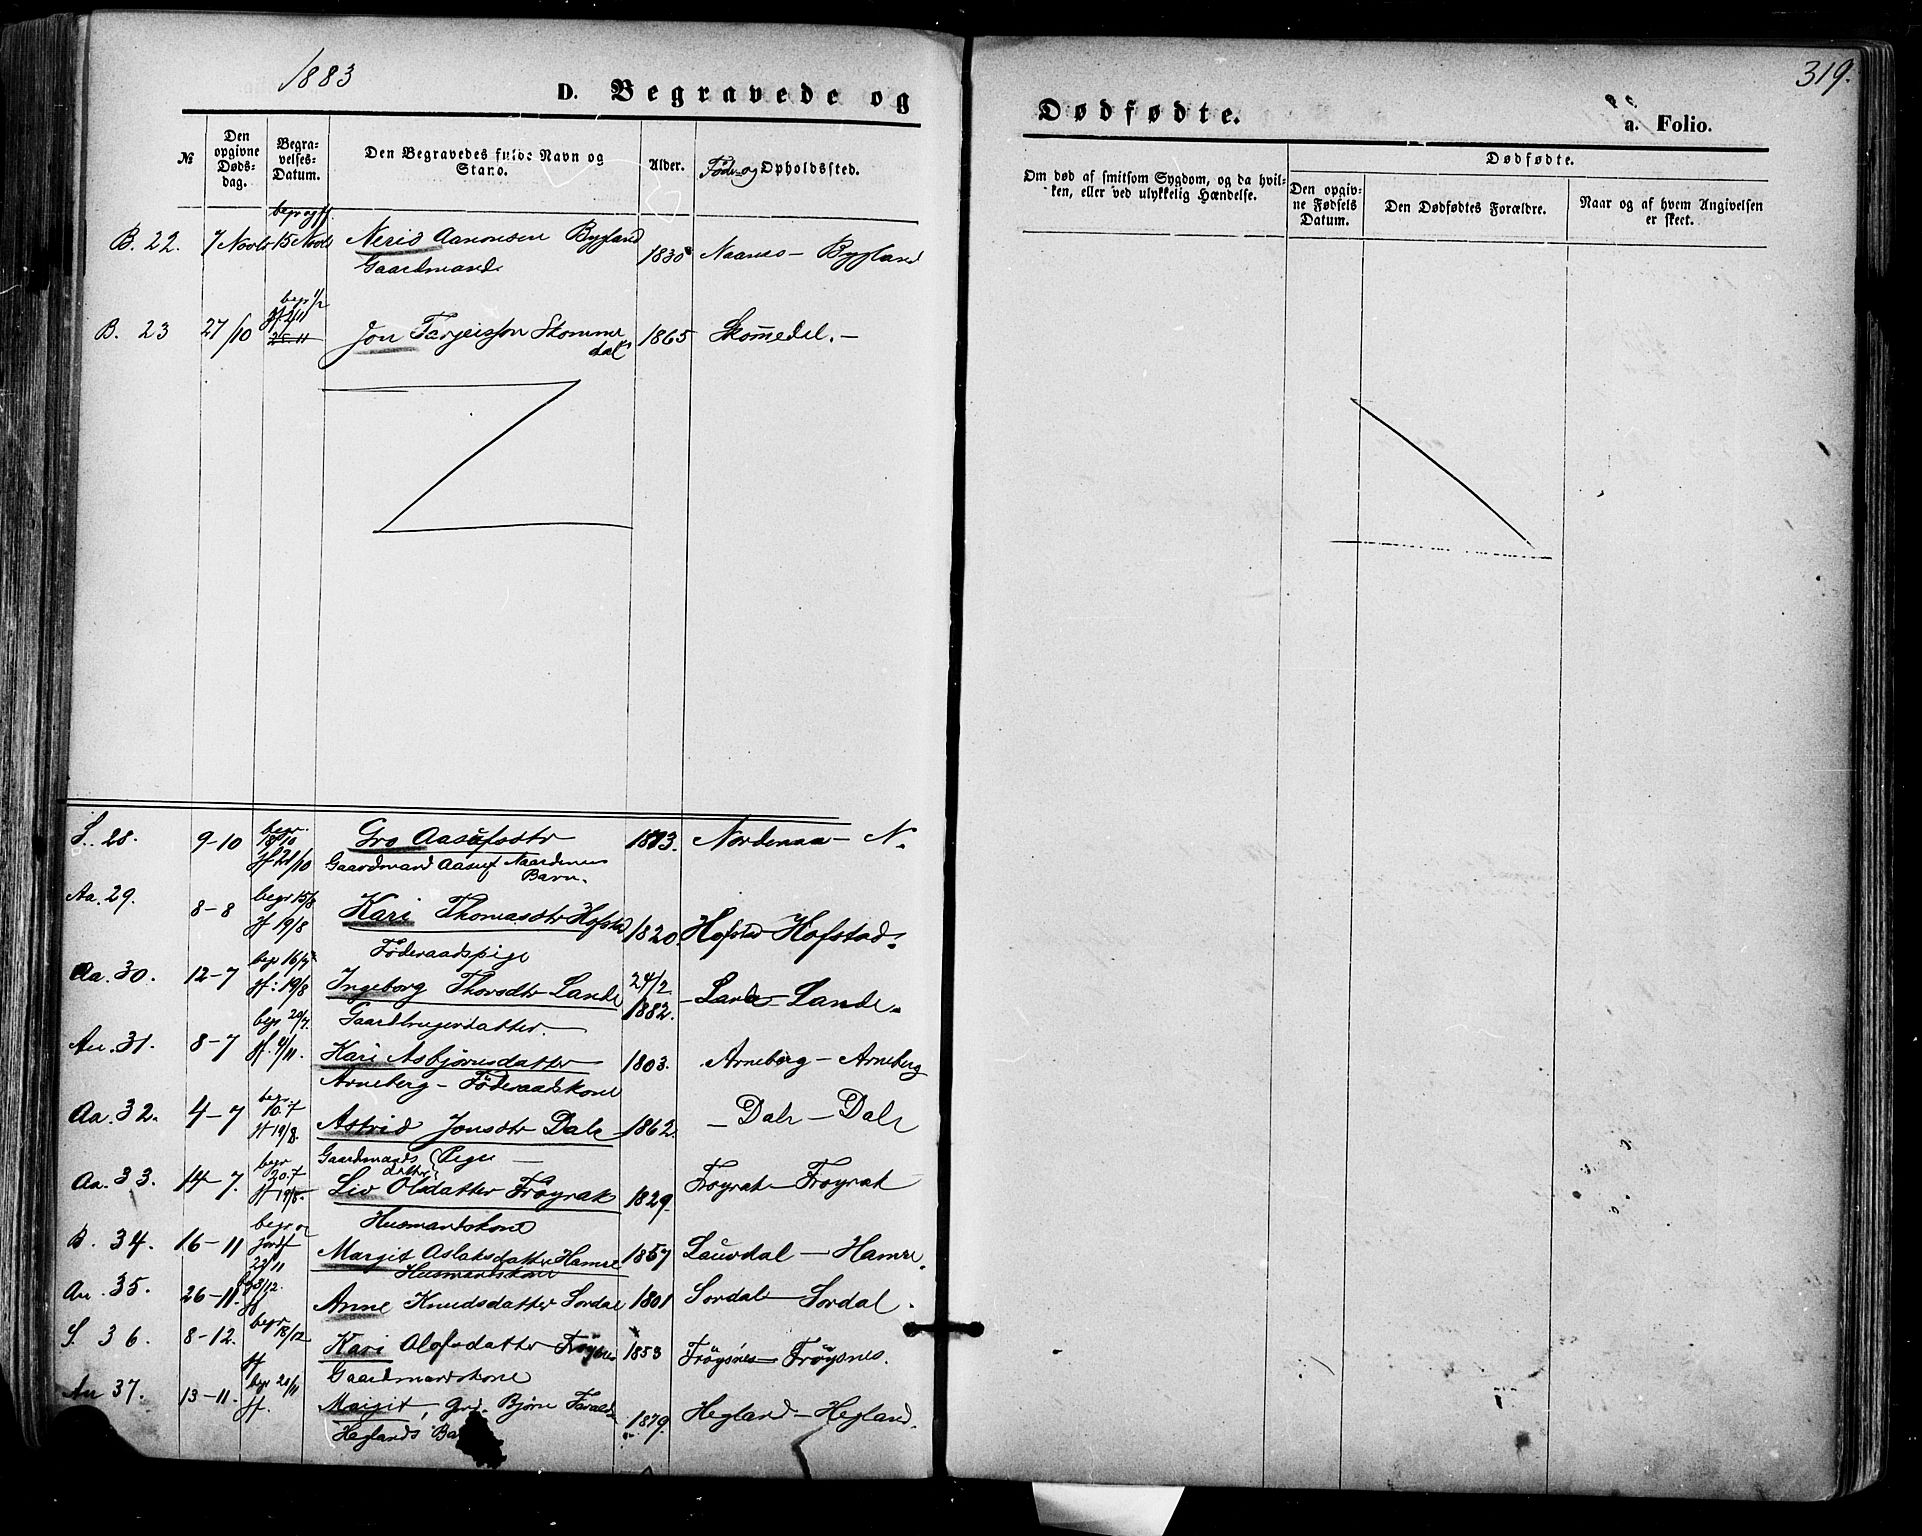 1883
D. Begravede og
Dødfødte.
a. Folio.
319.
№
Den opgivne Døds-dag.
Begra-velses-Datum.
Den Begravedes fulde Navn og Stand.
Alder.
Føde- og Opholdssted.
Om død af smitsom Sygdom, og da hvil-ken, eller ved ulykkelig Hændelse.
Dødfødte.
Den opgiv-ne Fødsels Datum.
Den Dødfødtes Forældre.
Naar og af hvem Angivelsen er skeet.
begr og jf.
B. 22. 7 Novbr 15 Novbr Nerid Aanonsen Bygland 1830 Naanes - Bygland
Gaardmand
begr 1/2
jf 2/11
B. 23 27/10 25-11 Jon Tarjeisson Skomme 1865 Skomedel. -
dal
S. 28. 9-10 begr. 18/10 Gro Aasufsdtr 1883. Nordenaa - N.
jf 21/10 Gaardmand Aasuf Naardenaas
Barn.
Aa. 29. 8-8 begr 15/8
jf 19/8 Kari Thomasdtr Hofstad 1820. Hofstad Hofstad.
Føderaadspige
Aa. 30. 12-7 begr 16/7
jf: 19/8 Ingeborg Thorsdtr Lande 24/2 1882. - Lande - Lande.
Gaardbrugerdatter.
Au. 31. 8-7 begr 20/7
jf. 4/11. Kari Asbjørnsdatter 1803. Arneberg - Arneberg
Arneberg - Føderaadskone
Aa. 32. 4-7 begr 10.7
jf 19/8. Astrid Jonsdtr Dale 1862. - Dale - Dale
Gaardmands datter Pige -
Aa. 33. 14-7. begr 20.7
jf 19/8. Liv Olsdatter Frøyrak 1829. Frøyrak - Frøyrak
Husmandskone
B. 34. 16-11 begr og jordf 22/11 Margit Aslaksdatter Hamre 1857 Lauvdal - Hamre.
Husmandskone
Au. 35. 26-11. begr 3/12. jf Anne Knudsdatter Sordal 1801 Sordal - Sordal.
S. 36. 8-12. begr 18/12 Kari Olofsdatter Frøysnes 1853 Frøysnes - Frøysnes.
jf Gaardmandskone
Au 37. 13-11. begr 20/11 jf. Margit, Grd. Bjørn Tarald 1879. Hegland - Hegland.
Heglands Ba